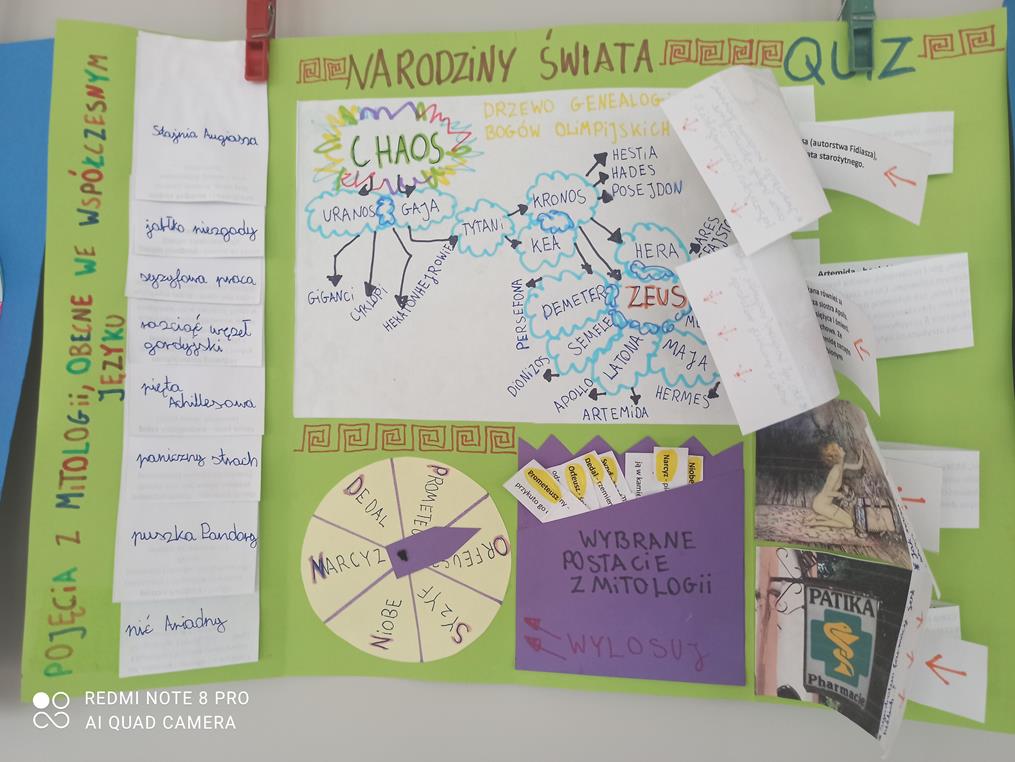 NARODZINY ŚWIATA
QUIZ
POJĘCIA Z MITOLOGII, OBECNE WE WSPÓŁCZESNYM
JĘZYKU
Stajnia Augiasza
jabłko niezgody
syzyfowa praca
rozciąć węzeł
gordyjski
pięta
Achillesowa
paniczny strach
puszka Pandory
nić Ariadny
DRZEWO GENEALOG
BOGÓW OLIMPIJSKICH
CHAOS
URANOS
GAJA
TYTANI
KRONOS
KEA
HESTIA
HADES
POSEJDON
GIGANCI
CYKLOPI
HEKATONHEJROWIE
HERA
ARES
ZEUS
DEMETER
PERSEFONA
SEMELE
DIONIZOS
LATONA
APOLLO
ARTEMIDA
MAJA
HERMES
DEDAL
PROMETEU
ORFEUS
SYZYF
NIOBE
NARCYZ
Prometeusz
przykuto go i
Orfeusz
Dedal
Narcyz
Niobe
ją w kamie
WYBRANE
POSTACIE
Z MITOLOGII
WYLOSUJ
sa (autorstwa Fidiasza),
ata starożytnego.
Artemida
PATIKA
Pharmacie
REDMI NOTE 8 PRO
AI QUAD CAMERA